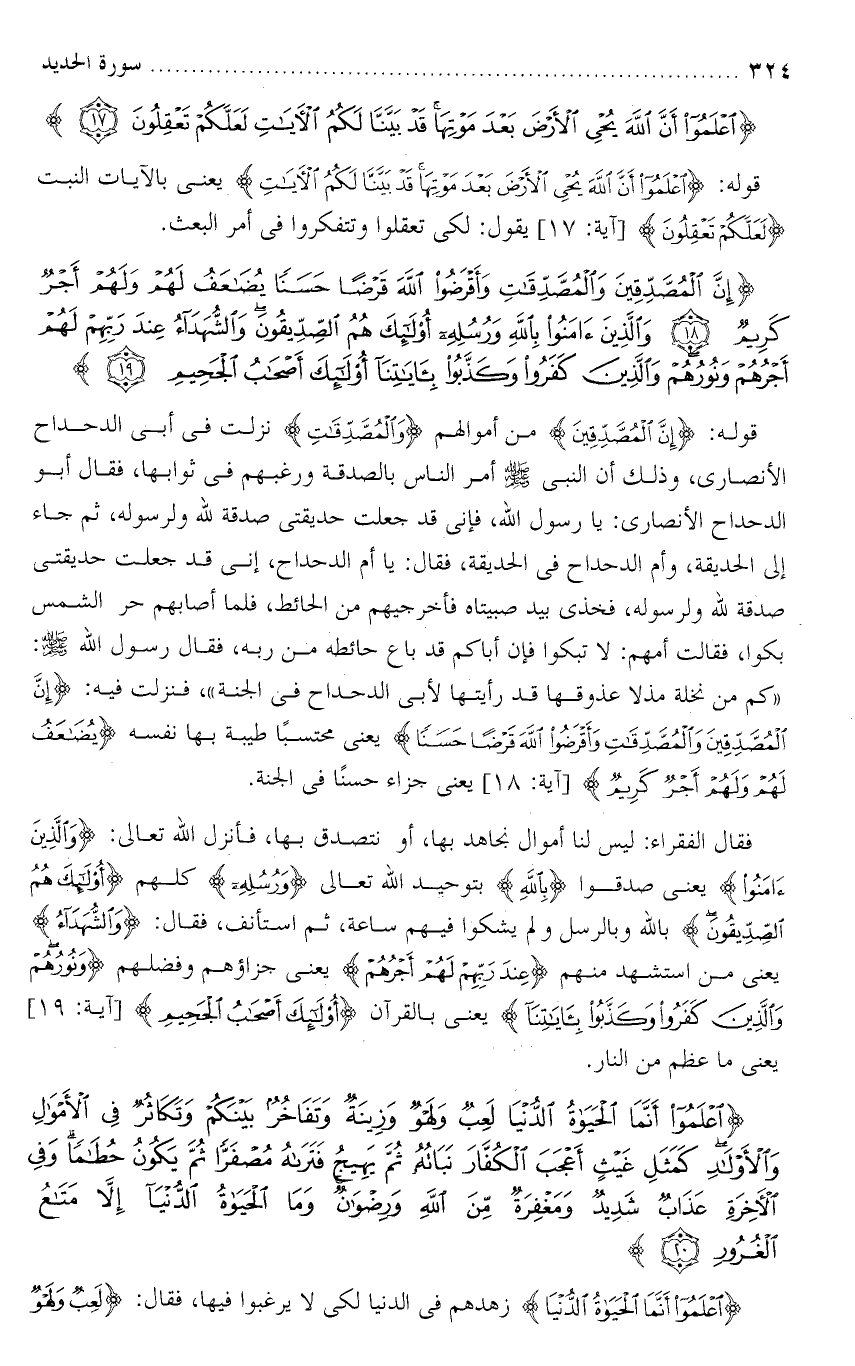 ٣٢٤ ........................................................................ سورة الحديد
﴿ ٱعۡلَمُوٓاْ أَنَّ ٱللَّهَ يُحۡىِ ٱلۡأَرۡضَ بَعۡدَ مَوۡتِهَاۚ قَدۡ بَيَّنَّا لَكُمُ ٱلۡأَيَٰتِ لَعَلَّكُمۡ تَعۡقِلُونَ ١٧ ﴾
قوله: ﴿ٱعۡلَمُوٓاْ أَنَّ ٱللَّهَ يُحۡىِ ٱلۡأَرۡضَ بَعۡدَ مَوۡتِهَاۚ قَدۡ بَيَّنَّا لَكُمُ ٱلۡأَيَٰتِ ﴾ يعنى بالآيات النبت
﴿لَعَلَّكُمۡ تَعۡقِلُونَ ﴾ [آية: ١٧] يقول: لكى تعقلوا وتتفكروا فى أمر البعث.
﴿ إِنَّ ٱلۡمُصَّدِّقِينَ وَٱلۡمُصَّدِّقَٰتِ وَأَقۡرَضُواْ ٱللَّهَ قَرۡضًا حَسَنًا يُضَٰعَفُ لَهُمۡ وَلَهُمۡ أَجۡرٌ
كَرِيمٌ ١٨ وَٱلَّذِينَ ءَامَنُواْ بِٱللَّهِ وَرُسُلِهِۦٓ أُوْلَٰٓئِكَ هُمُ ٱلصِّدِّيقُونَۖ وَٱلشُّهَدَآءُ عِندَ رَبِّهِمۡ لَهُمۡ
أَجۡرُهُمۡ وَنُورُهُمۡۖ وَٱلَّذِينَ كَفَرُواْ وَكَذَّبُواْ بِـَٔايَٰتِنَآ أُوْلَٰٓئِكَ أَصۡحَٰبُ ٱلۡجَحِيمِ ١٩ ﴾
قوله: ﴿إِنَّ ٱلۡمُصَّدِّقِينَ ﴾ من أموالهم ﴿وَٱلۡمُصَّدِّقَٰتِ ﴾ نزلت فى أبى الدحداح
الأنصارى، وذلك أن النبى ﷺ أمر الناس بالصدقة ورغبهم فى ثوابها، فقال أبو
الدحداح الأنصارى: يا رسول الله، فإنى قد جعلت حديقتى صدقة لله ولرسوله، ثم جاء
إلى الحديقة، وأم الدحداح فى الحديقة، فقال: يا أم الدحداح، إنى قد جعلت حديقتى
صدقة لله ولرسوله، فخذى بيد صبيتاه فأخرجيهم من الحائط، فلما أصابهم حر الشمس
بكوا، فقالت أمهم: لا تبكوا فإن أباكم قد باع حائطه من ربه، فقال رسول الله ﷺ:
«كم من نخلة مذلا عذوقها قد رأيتها لأبى الدحداح فى الجنة»، فنزلت فيه: ﴿إِنَّ
ٱلۡمُصَّدِّقِينَ وَٱلۡمُصَّدِّقَٰتِ وَأَقۡرَضُواْ ٱللَّهَ قَرۡضًا حَسَنًا ﴾ يعنى محتسبًا طيبة بها نفسه ﴿يُضَٰعَفُ
لَهُمۡ وَلَهُمۡ أَجۡرٌ كَرِيمٌ ﴾ [آية: ١٨] يعنى جزاء حسنًا فى الجنة.
فقال الفقراء: ليس لنا أموال نجاهد بها، أو نتصدق بها، فأنزل الله تعالى: ﴿وَٱلَّذِينَ
ءَامَنُواْ ﴾ يعنى صدقوا ﴿بِٱللَّهِ ﴾ بتوحيد الله تعالى ﴿وَرُسُلِهِۦٓ ﴾ كلهم ﴿أُوْلَٰٓئِكَ هُمُ
ٱلصِّدِّيقُونَۖ ﴾ بالله وبالرسل ولم يشكوا فيهم ساعة، ثم استأنف، فقال: ﴿وَٱلشُّهَدَآءُ ﴾
يعنى من استشهد منهم ﴿عِندَ رَبِّهِمۡ لَهُمۡ أَجۡرُهُمۡ ﴾ يعنى جزاؤهم وفضلهم ﴿وَنُورُهُمۡۖ
وَٱلَّذِينَ كَفَرُواْ وَكَذَّبُواْ بِـَٔايَٰتِنَآ ﴾ يعنى بالقرآن ﴿أُوْلَٰٓئِكَ أَصۡحَٰبُ ٱلۡجَحِيمِ ﴾ [آية: ١٩]
يعنى ما عظم من النار.
﴿ٱعۡلَمُوٓاْ أَنَّمَا ٱلۡحَيَوٰةُ ٱلدُّنۡيَا لَعِبٌ وَلَهۡوٌ وَزِينَةٌ وَتَفَاخُرُۢ بَيۡنَكُمۡ وَتَكَاثُرٌ فِى ٱلۡأَمۡوَٰلِ
وَٱلۡأَوۡلَٰدِۖ كَمَثَلِ غَيۡثٍ أَعۡجَبَ ٱلۡكُفَّارَ نَبَاتُهُۥ ثُمَّ يَهِيجُ فَتَرَىٰهُ مُصۡفَرًّا ثُمَّ يَكُونُ حُطَٰمًاۖ وَفِى
ٱلۡأَخِرَةِ عَذَابٌ شَدِيدٌ وَمَغۡفِرَةٌ مِّنَ ٱللَّهِ وَرِضۡوَٰنٌۚ وَمَا ٱلۡحَيَوٰةُ ٱلدُّنۡيَآ إِلَّا مَتَٰعُ
ٱلۡغُرُورِ ٢٠ ﴾
﴿ٱعۡلَمُوٓاْ أَنَّمَا ٱلۡحَيَوٰةُ ٱلدُّنۡيَا ﴾ زهدهم فى الدنيا لكى لا يرغبوا فيها، فقال: ﴿لَعِبٌ وَلَهۡوٌ